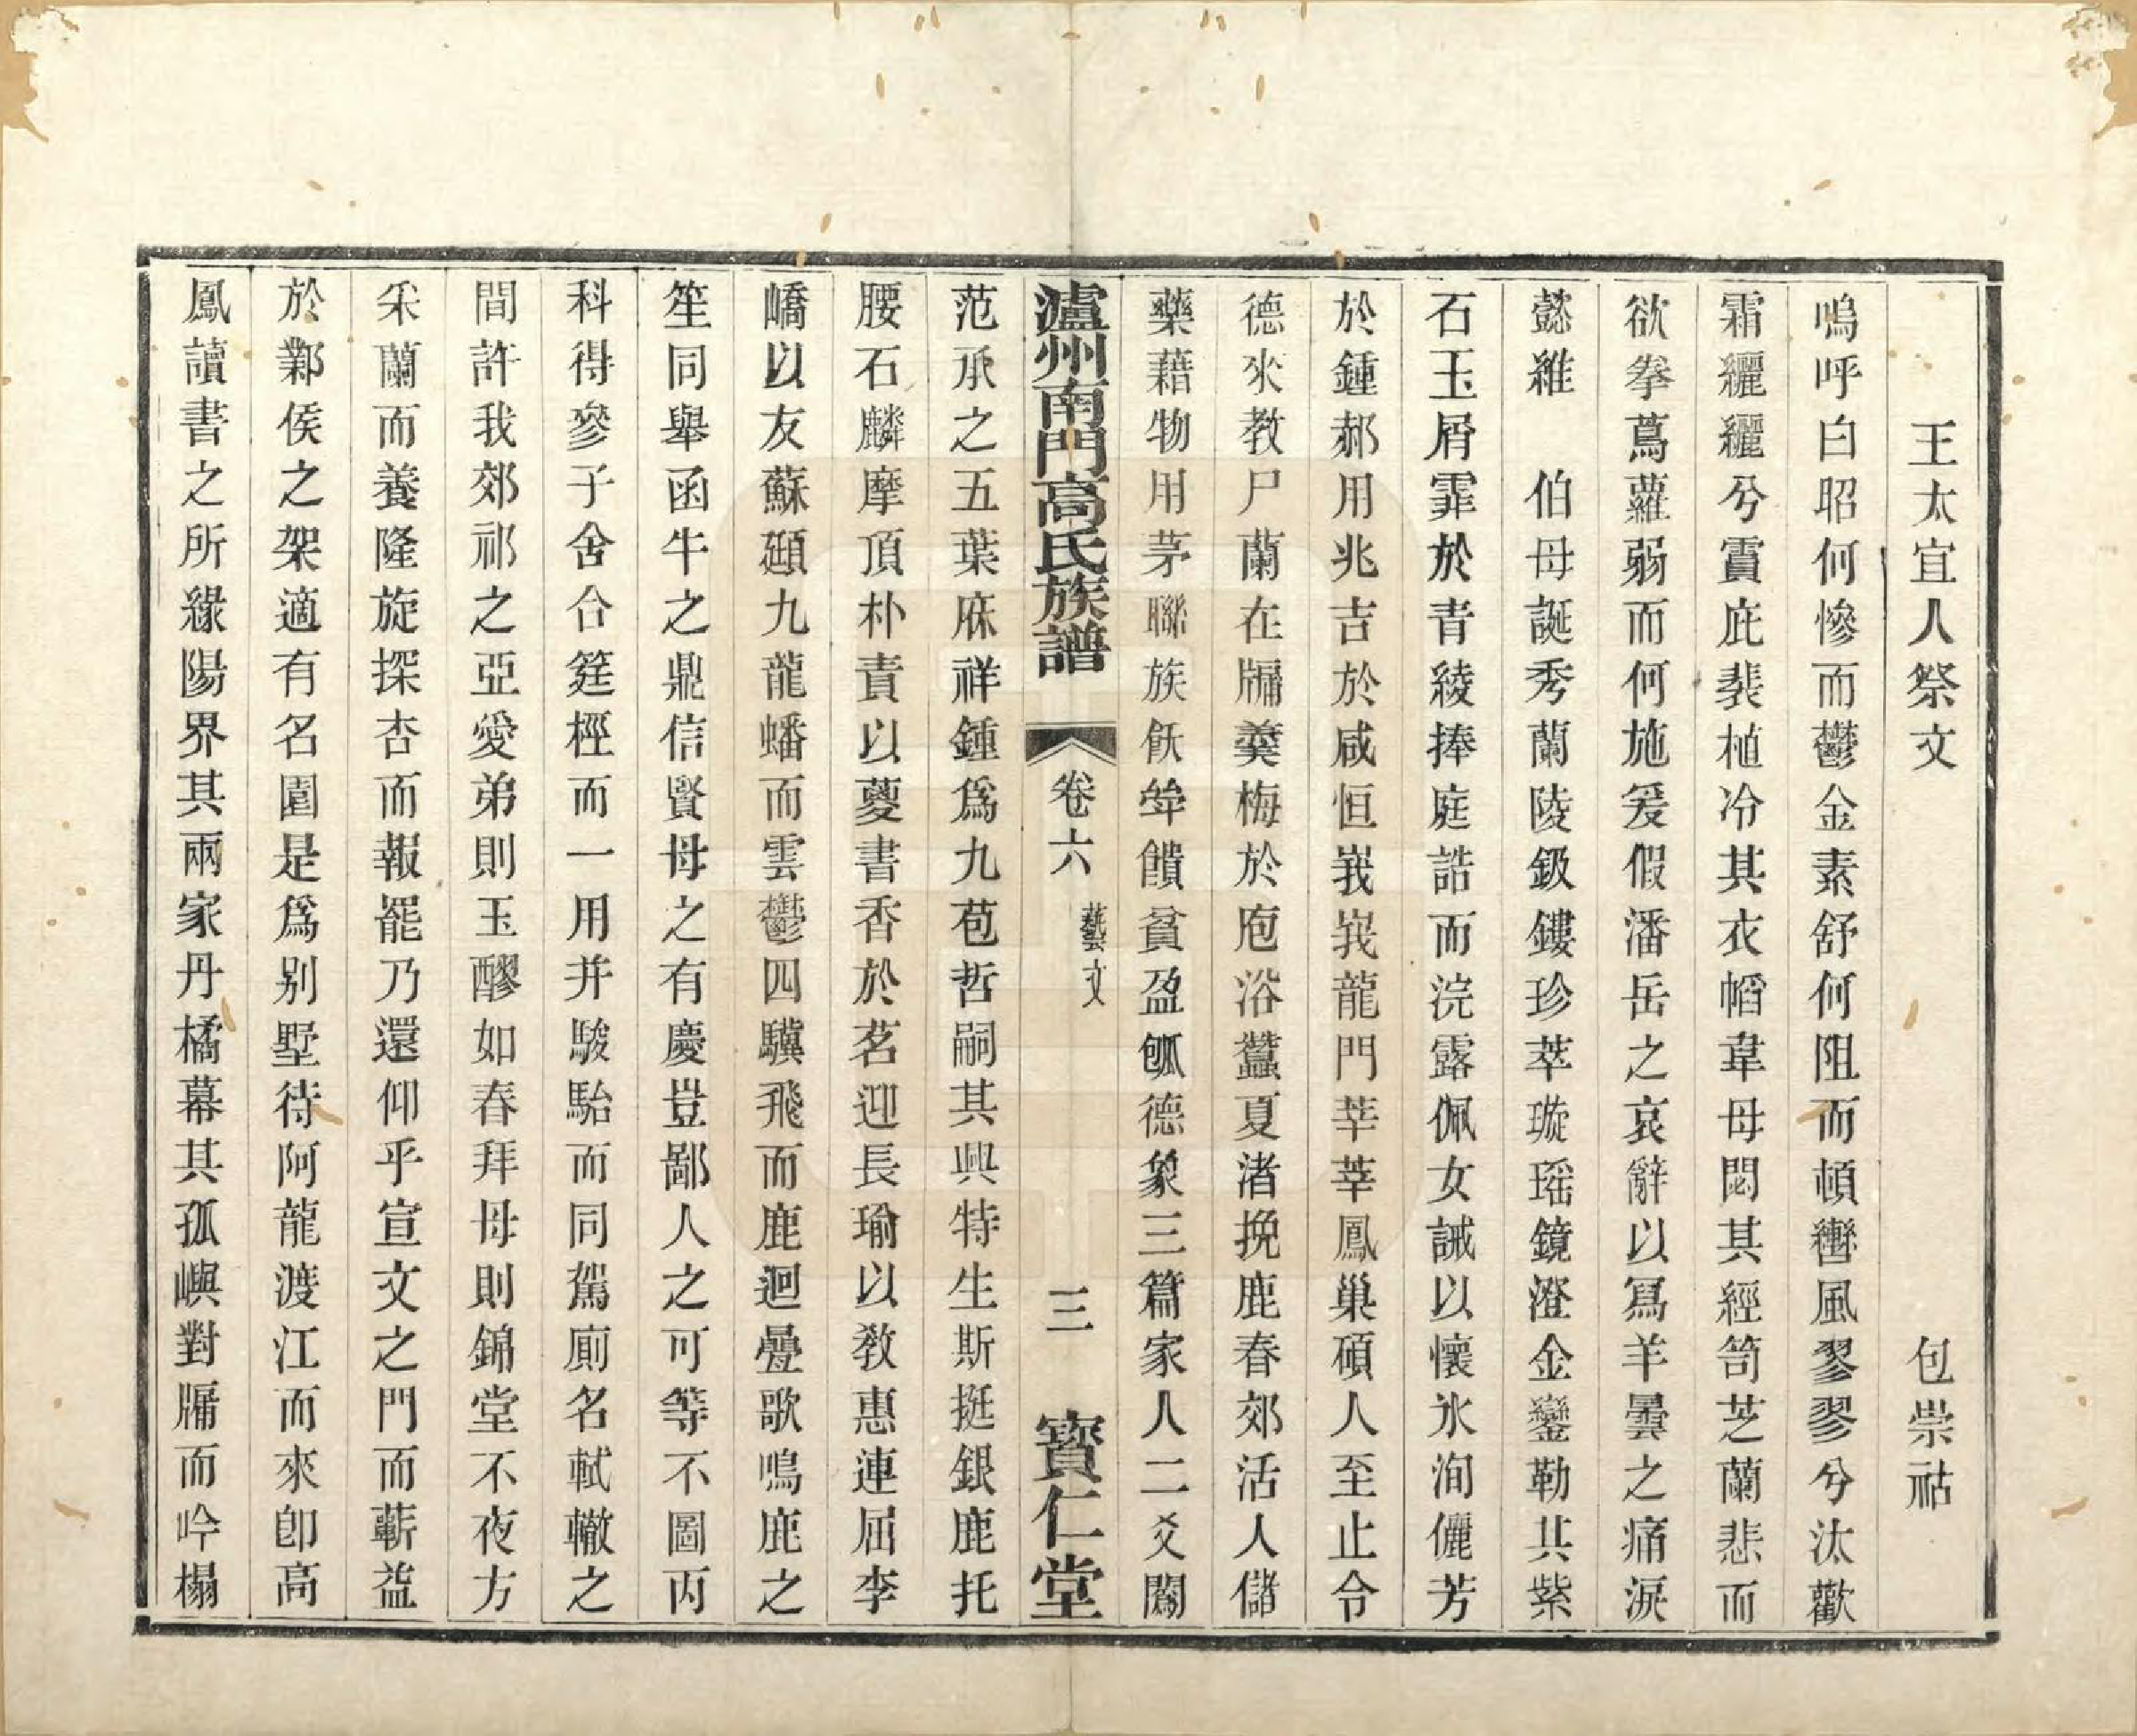 王太宜人祭文 包崇祜
嗚呼白昭何慘而鬱金素舒何阻而頓轡風翏翏兮汰歡
霜纚纚兮賈庇裴植冷其衣幍韋母閟其經笥芝蘭悲而
欲拳蔦蘿弱而何施爰假潘岳之哀辭以寫羊曇之痛淚
懿維 伯母誕秀蘭陵鈒鏤珍萃璇瑶鏡澄金鑾勒共紫
石玉屑霏於青綾捧庭誥而浣露佩女誡以懷氷洵儷芳
於鍾郝用兆吉於咸恒峩峩龍門莘莘鳳巢碩人至止令
德來教尸蘭在牖羹梅於庖浴蠶夏渚挽鹿春郊活人儲
藥藉物用茅聯族飫牢饋貧盈瓠德象三篇家人二爻闕
瀘州南門高氏族譜 卷六 藝文 三 寶仁堂
范承之五葉庥祥鍾爲九苞哲嗣其興特生斯挺銀鹿托
腰石麟摩頂朴責以夔書香於茗迎長瑜以敎惠連屈李
嶠以友蘇頲九龍蟠而雲鬱四驥飛而鹿迴疊歌鳴鹿之
笙同舉函牛之鼎信賢母之有慶豈鄙人之可等不圖丙
科得參子舍合筵桱而一用并駿駘而同駕廁名軾轍之
間許我郊祁之亞愛弟則玉醪如春拜母則錦堂不夜方
采蘭而養隆旋探杏而報罷乃還仰乎宣文之門而蘄益
於鄴侯之架適有名園是爲别墅待阿龍渡江而來卽高
鳳讀書之所緣陽界其兩家丹橘幕其孤嶼對牖而吟榻